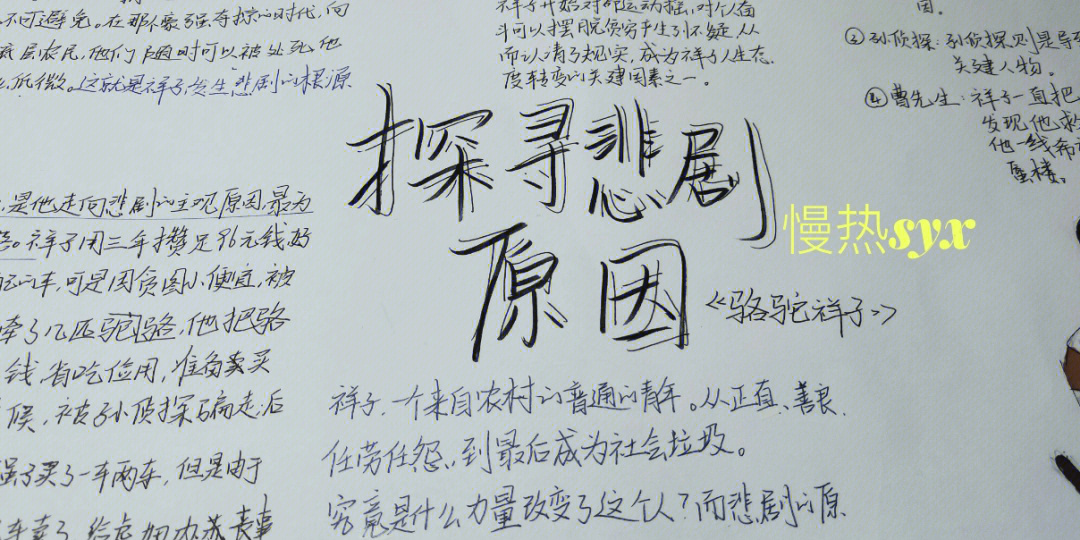 不可避免。在那个豪强夺掠的时代,向
底层农民,他们随时可以被处死他
低微。这就是祥子发生悲剧的根源
是他走向悲剧的主观原因,最为
祥子用三年攒足96元钱,好
车,可是因贪图小便宜,被
牵了几匹骆驼,他把骆
钱,省吃俭用,准备卖买
候,被孙侦探骗走,后
强子买了一车两车,但是由于
车卖了,给虎妞办苏丧事
祥子开始对命运动摇,对个人奋
斗可以摆脱贫穷产生了怀疑,从
而认清了现实,成为祥子人生态
度转变的关建因素之一。
因。
③孙侦探:孙侦探则是导致
关建人物。
④曹先生:祥子一直把
发现他求
他一线希
蜃楼。
探寻悲剧
原因
《骆驼祥子》
慢热syx
祥子,一个来自农村的普通的青年。从正直、善良、
任劳任怨,到最后成为社会垃圾。
究竟是什么力量改变了这个人?而悲剧的原